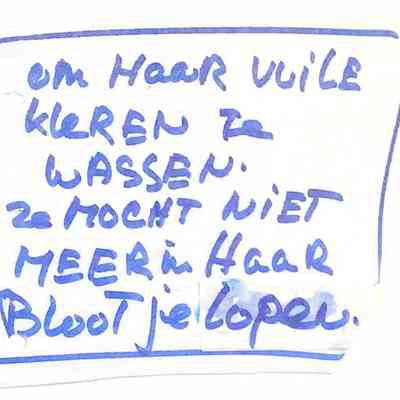 om HaaR VUiLE
kleREN Te
WASSEN.
Ze MOCHT NiET
MEER in HaaR
BlooTje lopen.